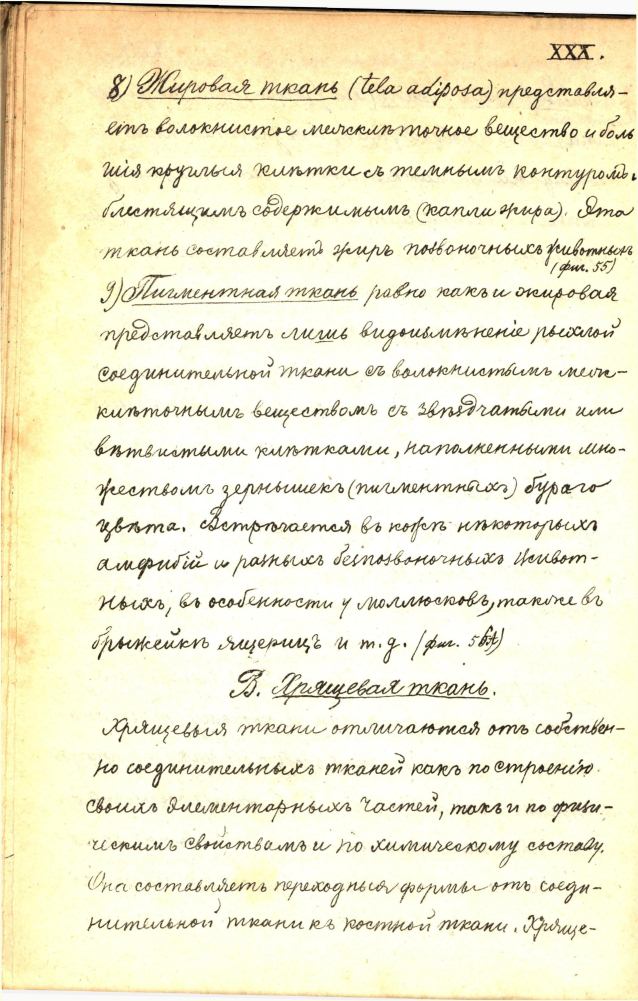 XXX.
8) Жировая ткань (tela adiposa) представля-
етъ волокнистое межклѣточное вещество и боль
шія круглыя клѣтки съ темнымъ контуромъ и
блестящимъ содержимымъ (капли жира). Эта
ткань составляетъ жиръ позвоночныхъ животныхъ
(фиг. 55)
9) Пигментная ткань равно какъ и жировая
представляетъ лишь видоизмѣненіе рыхлой
соединительной ткани съ волокнистымъ меж-
клѣточнымъ веществомъ съ звѣздчатыми или
вѣтвистыми клѣтками, наполненными мно-
жествомъ зернышекъ (пигментныхъ) бураго
цвѣта. Встрѣчается въ кожѣ нѣкоторыхъ
амфибій и разныхъ безпозвоночныхъ живот-
ныхъ, въ особенности у моллюсковъ, также въ
брыжейкѣ ящерицъ и т. д. (фиг.
В. Хрящевая ткань.
Хрящевыя ткани отличаются отъ собствен-
но соединительныхъ тканей какъ по строенію
своихъ элементарныхъ частей, такъ и по физи-
ческимъ свойствамъ и по химическому составу.
Она составляетъ переходныя формы отъ соеди-
нительной ткани къ костной ткани. Хряще-